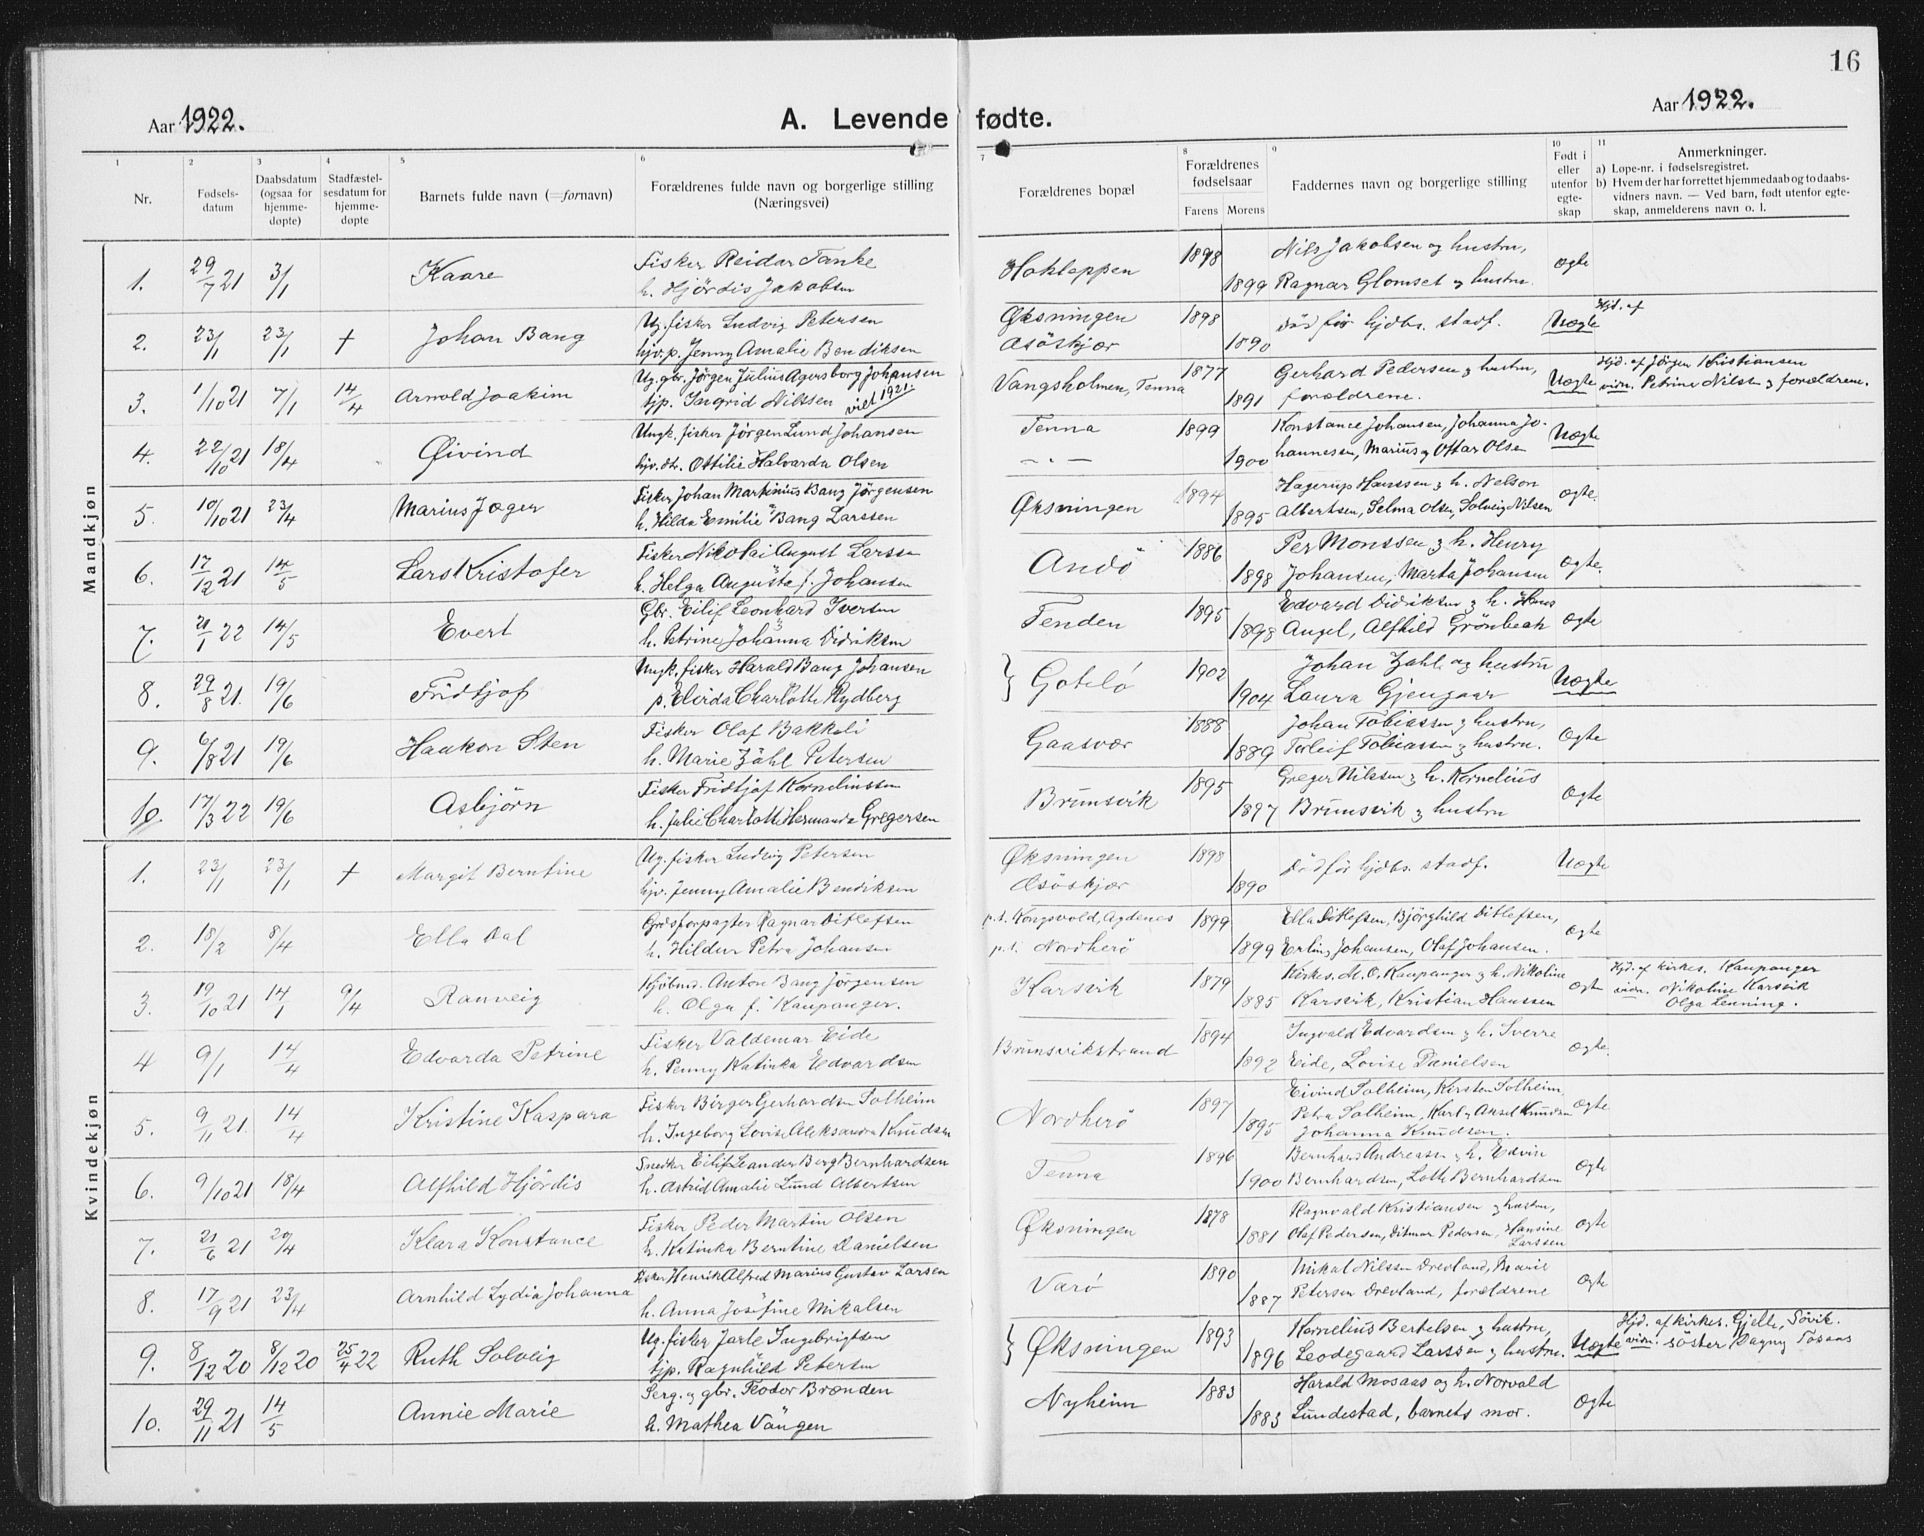 16
Aar 1922. A. Levende fødte. Aar 1922.
1 2 3 4 5 6 7 8 9 10 11
Nr. Fødselsdatum Daabsdatum (ogsaa for hjemmedøpte) Stadfæstelsesdatum for hjemmedøpte Barnets fulde navn (=fornavn) Forældrenes fulde navn og borgerlige stilling (Næringsvei) Forældrenes bopæl Forældrenes fødselsaar Farens Morens Faddernes navn og borgerlige stilling Født i eller utenfor egteskap Anmerkninger.
a) Løpe-nr. i fødselsregistret.
b) Hvem der har forrettet hjemmedaab og to daabsvidners navn. — Ved barn, født utenfor egteskap, anmelderens navn o. l.
Mandkjøn
1. 29/7 21 3/1 Kaare Fisker Reidar Tanke 1898 Nils Jakobsen og hustru, ægte
h. Hjördis Jakobsen 1899 Ragnar Glomset og hustru.
2. 23/1 23/1 + Johan Bang Ug. fisker Ludvig Petersen Øksningen 1898 död før hjdbs. stadf. Uægte Hjd. af
hjv. p. Jenny Amalie Bendiksen Æsöskjær 1890
3. 1/10 21 7/1 14/4 Arnold Joakim Ug. gbr. Jörgen Julius Agersborg Johansen Vangsholmen, Tenna 1877 Gerhard Pedersen & hustru, Uægte Hjd. af Jörgen Kristiansen
tjp. Ingrid Nilssen viet 1921. 1891 forældrene. vidn. Petrine Nilsen & forældrene.
4. 22/10 21 18/4 Øivind Ungk. fisker Jörgen Lund Johansen Tenna 1899 Konstance Johansen, Johanna Jo- Uægte
hjv. dtr. Ottilie Halvarda Olsen — " — 1900 hannessen, Marius & Ottar Olsen
5. 10/10 21 23/4 Marius Jæger Fisker Johan Martinius Bang Jörgensen Øksningen 1894 Hagerup Hanssen & h. Nelson ægte.
h. Hilda Emilie Bang Larssen 1895 Albertsen, Selma Olsen, Solveig Nilsen
6. 17/12 21 14/5 Lars Kristofer Fisker Nikolai August Larssen Andö 1886 Per Monssen & h. Henry Ægte.
h. Helga Augusta f. Johansen 1898 Johansen, Marta Johansen
7. 21/1 22 14/5 Evert Gbr. Eilif Leonhard Iversen Tenden 1895 Edvard Didriksen & h. Hans Ægte
h. Petrine Johanna Didriksen 1898 Angel, Alfhild Grönbech
8. 29/8 21. 19/6 Fridtjof Ungk. fisker Harald Bang Johansen 1902 Johan Zahl og hustru Uægte
p. Elvida Charlotte Rydberg 1904 Laura Gjengaar
9. 6/8 21 19/6 Haakon Sten Fisker Olaf Bakkeli Gaasvær 1888 Johan Tobiassen & hustru, Ægte
h. Marie Zahl Petersen 1889 Torleif Tobiassen & hustru.
10. 17/3 22 19/6 Asbjörn Fisker Fridtjof Kornelinssen Brunsvik 1895 Greger Nilssen & h. Kornelius Ægte
h. Julie Charlotte Hermanda Gregersen 1897 Brunsvik & hustru
Kvindekjøn
1. 23/1 23/1 + Margit Berntine Ug. fisker Ludvig Petersen Øksningen 1898 Död før hjdbs. stadf. Uægte
hjv. Jenny Amalie Bendriksen Æsöskjær 1890
2. 18/2 8/4 Ella Dal Grdsforpagter Ragnar Ditlefsen p.t. Kongsvold, Agdenes 1899 Ella Ditlefsen, Björghild Ditlefsen, Ægte
h. Hildur Petra Johansen p.t. Nordherö 1899 Erling Johansen, Olaf Johansen.
3. 19/10 21 14/1 9/4 Ranveig Kjöbmd. Anton Bang Jörgensen Karsvik 1879 Kirkes. M. O. Kaupanger & h. Nikoline Ægte Hjd. af kirkes. Kaupanger
h. Olga f. Kaupanger. 1885 Karsvik, Kristian Hanssen vidn. Nikoline Karsvik
Olga Lenning.
4 9/1 14/4 Edvarda Petrine Fisker Valdemar Eide Brunsvikstrand 1894 Ingvald Edvardsen & h. Sverre Ægte.
h. Penny Katinka Edvardsen 1892 Eide, Lovise Danielsen
5. 9/11 21. 14/4 Kristine Kaspara Fisker Birger Gerhardsen Solheim Nordherö 1897 Eivind Solheim, Kirsten Solheim, Ægte
h. Ingeborg Lovise Aleksandra Knudsen 1895 Petra Solheim, Karl & Aksel Knudsen
Johanna Knudsen.
6. 9/10 21 18/4 Alfhild Hjördis Snedker Eilif Leander Berg Bernhardsen Tenna 1896 Bernhard Andreasen & h. Edvin Ægte
h. Astrid Amalie Lund Albertsen 1900 Bernhardsen, Loth Bernhardsen
7. 21/6 21 29/4 Klara Konstance Fisker Peder Martin Olsen Øksningen 1878 Ragnvald Kristiansen & hustru, Ægte
h. Katinka Berntine Danielsen 1881 Olaf Pedersen, Ditmar Pedersen, Hansine Larssen
8. 17/9 21 23/4 Arnhild Lydia Johanna Fisker Henrik Alfred Marius Gustav Larsen Varö 1890 Mikal Nilssen Drevland, Marie Ægte
h. Anna Josefine Mikalsen 1887 Petersen Drevland, forældrene
9. 8/12 20 8/12 20 25/4 22 Ruth Solveig Ug. fisker Jarle Ingebrigtsen Øksningen 1893 Kornelius Bertelsen & hustru, Uægte Hjd. af kirkes. Gjelle, Sövik.
tjp. Ragnhild Petersen 1896 Leodegaard Larssen & hustru. vidn. söster Dagny Tosaas
10. 29/11 21 14/5 Annie Marie Serg. & gbr. Teodor Brænden Nyheim 1883 Harald Mosaas og h. Norvald Ægte
h. Mathea Vangen 1883 Lundestad, barnets mor.